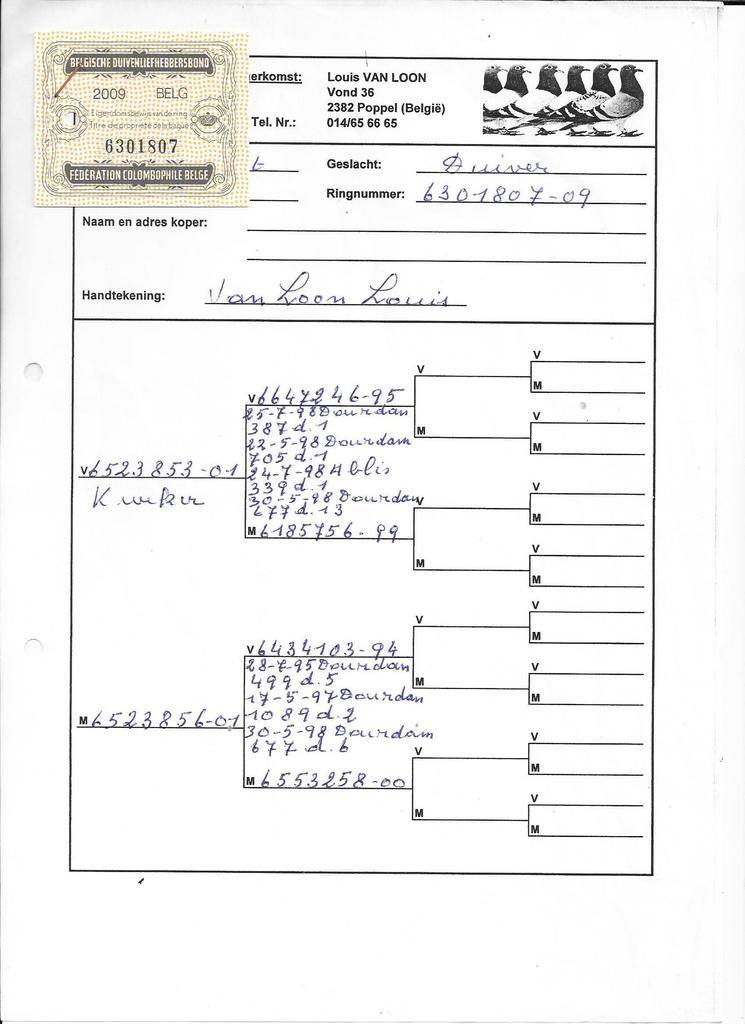 BELGISCHE DUIVENLIEFHEBBERSBOND
2009 BELG
Eigendomsbewijs van de ring
Titre de propriété de la bague
6301807
FÉDÉRATION COLOMBOPHILE BELGE
erkomst: Louis VAN LOON
Vond 36
2382 Poppel (België)
Tel. Nr.: 014/65 66 65
t Geslacht: Duiver
Ringnummer: 6301807-09
Naam en adres koper:
Handtekening: Van Loon Louis
V
V
M
V 6647246-95
25-7-98 Dourdan
387 d.1
M
V
22-5-98 Dourdam
M
705 d.1
V 6523853-01
24-7-98 Ablis
Kweker
339 d.1
30-5-98 Dourdan
677 d.13
V
V
M
M 6185756-99
M
V
M
V
V
M
V 6434103-94
28-7-95 Dourdan
499 d.5
M
V
17-5-97 Dourdan
M
M 6523856-01
1089 d.2
30-5-98 Dourdam
677 d.6
V
V
M
M 6553258-00
M
V
M